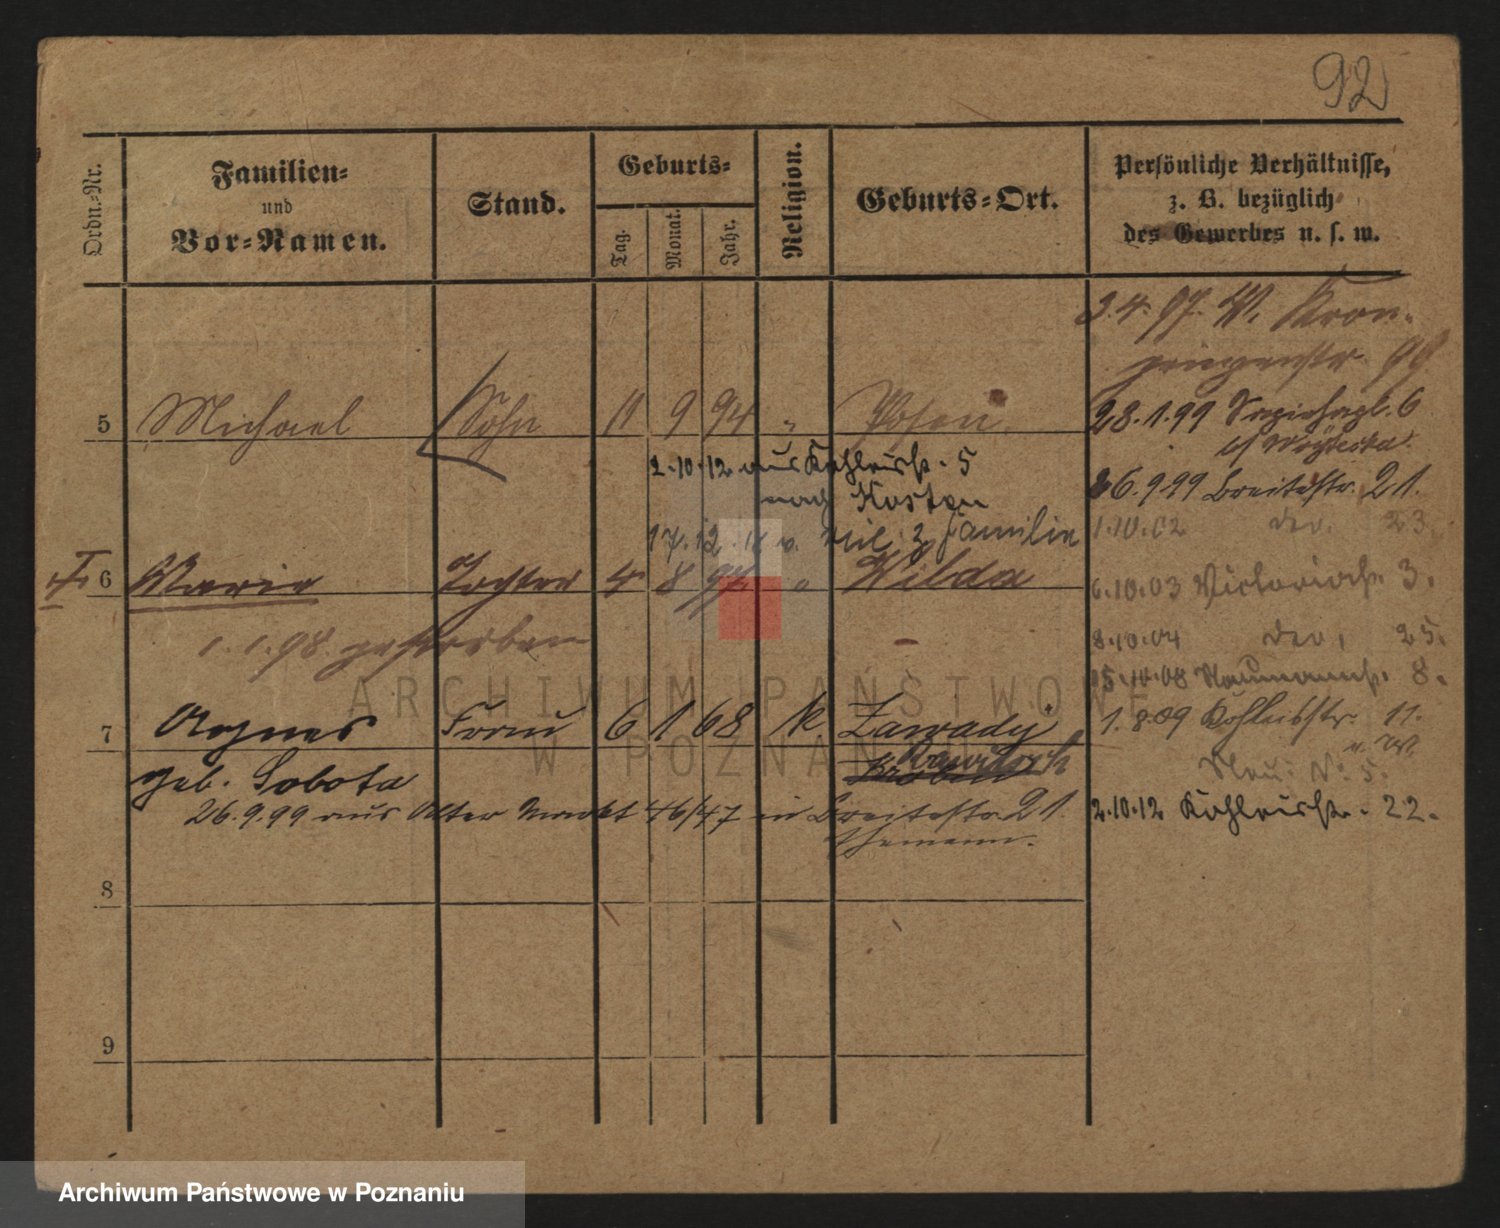 92
Ordn.-Nr.
Familien-
und
Vor-Namen.
Stand.
Geburts-
Tag.
Monat.
Jahr.
Religion.
Geburts-Ort.
Persönliche Verhältnisse,
z. B. bezüglich
des Gewerbes u. s. w.
3.4.97. W. Kron-
prinzenstr. 99
5 Michael Sohn 11 9 94 " Posen
28.1.99 6
2.10.12 aus Kohleisstr. 5
nach Kosten
26.9.99 Breitestr. 21.
17.12. Familie
1.10.02 do. 23.
† 6 Marie Tochter 4 8 97 " Wilda
6.10.03 Victoriastr. 3.
1.1.98. gestorben
8.10.04 do. 25.
15.10.08 Naumannstr. 8.
7 Agnes Frau 6 1 68 k Zawady
1.8.09 Kohleisstr. 11.
geb. Sobota
Rawitsch
Neu: No. 5.
26.9.99 aus Alter Markt 46/47 in Breitestr. 21.
Ehemann.
2.10.12 Kohleisstr. 22.
8
9
ARCHIWUM PAŃSTWOWE
W POZNANIU
Archiwum Państwowe w Poznaniu